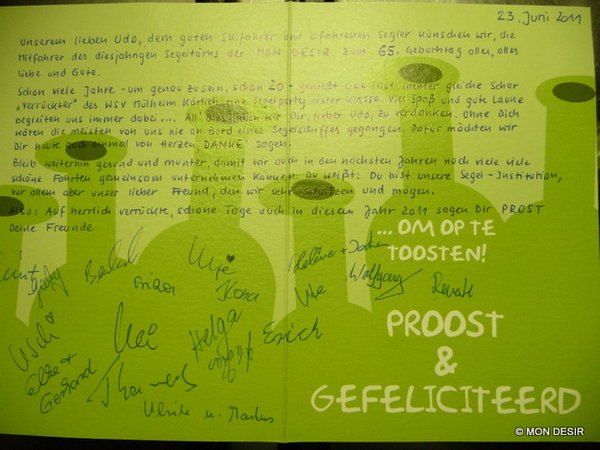 23. Juni 2011
Unserem lieben Udo, dem guten Skifahrer und erfahrenen Segler wünschen wir, die
Mitfahrer des diesjährigen Segeltörns der MON DESIR, zum 65. Geburtstag alles, alles
Liebe und Gute.
Schon viele Jahre - um genau zu sein, schon 20 - genießt eine fast immer gleiche Schar
"Verrückter" des WSV Mülheim Kärlich eine Segelparty erster Klasse. Viel Spaß und gute Laune
begleiten uns immer dabei.... All dies haben wir Dir, lieber Udo, zu verdanken. Ohne Dich
wären die meisten von uns nie an Bord eines Segelschiffes gegangen. Dafür möchten wir
Dir heute auch einmal von Herzen DANKE sagen.
Bleib weiterhin gesund und munter, damit wir auch in den nächsten Jahren noch viele viele
schöne Fahrten gemeinsam unternehmen können. Du weißt: Du bist unsere Segel-Institution,
vor allem aber unser lieber Freund, den wir sehr schätzen und mögen.
Also: Auf herrlich verrückte, schöne Tage auch in diesem Jahr 2011 sagen Dir PROST
Deine Freunde
Gaby Ute Helene + Jochen
Ilona Ute Wolfgang Renate
Uschi Helga Erich
Elke +
Gerhard
Ulrike u. Markus
...OM OP TE
TOOSTEN!
PROOST
&
GEFELICITEERD
© MON DESIR